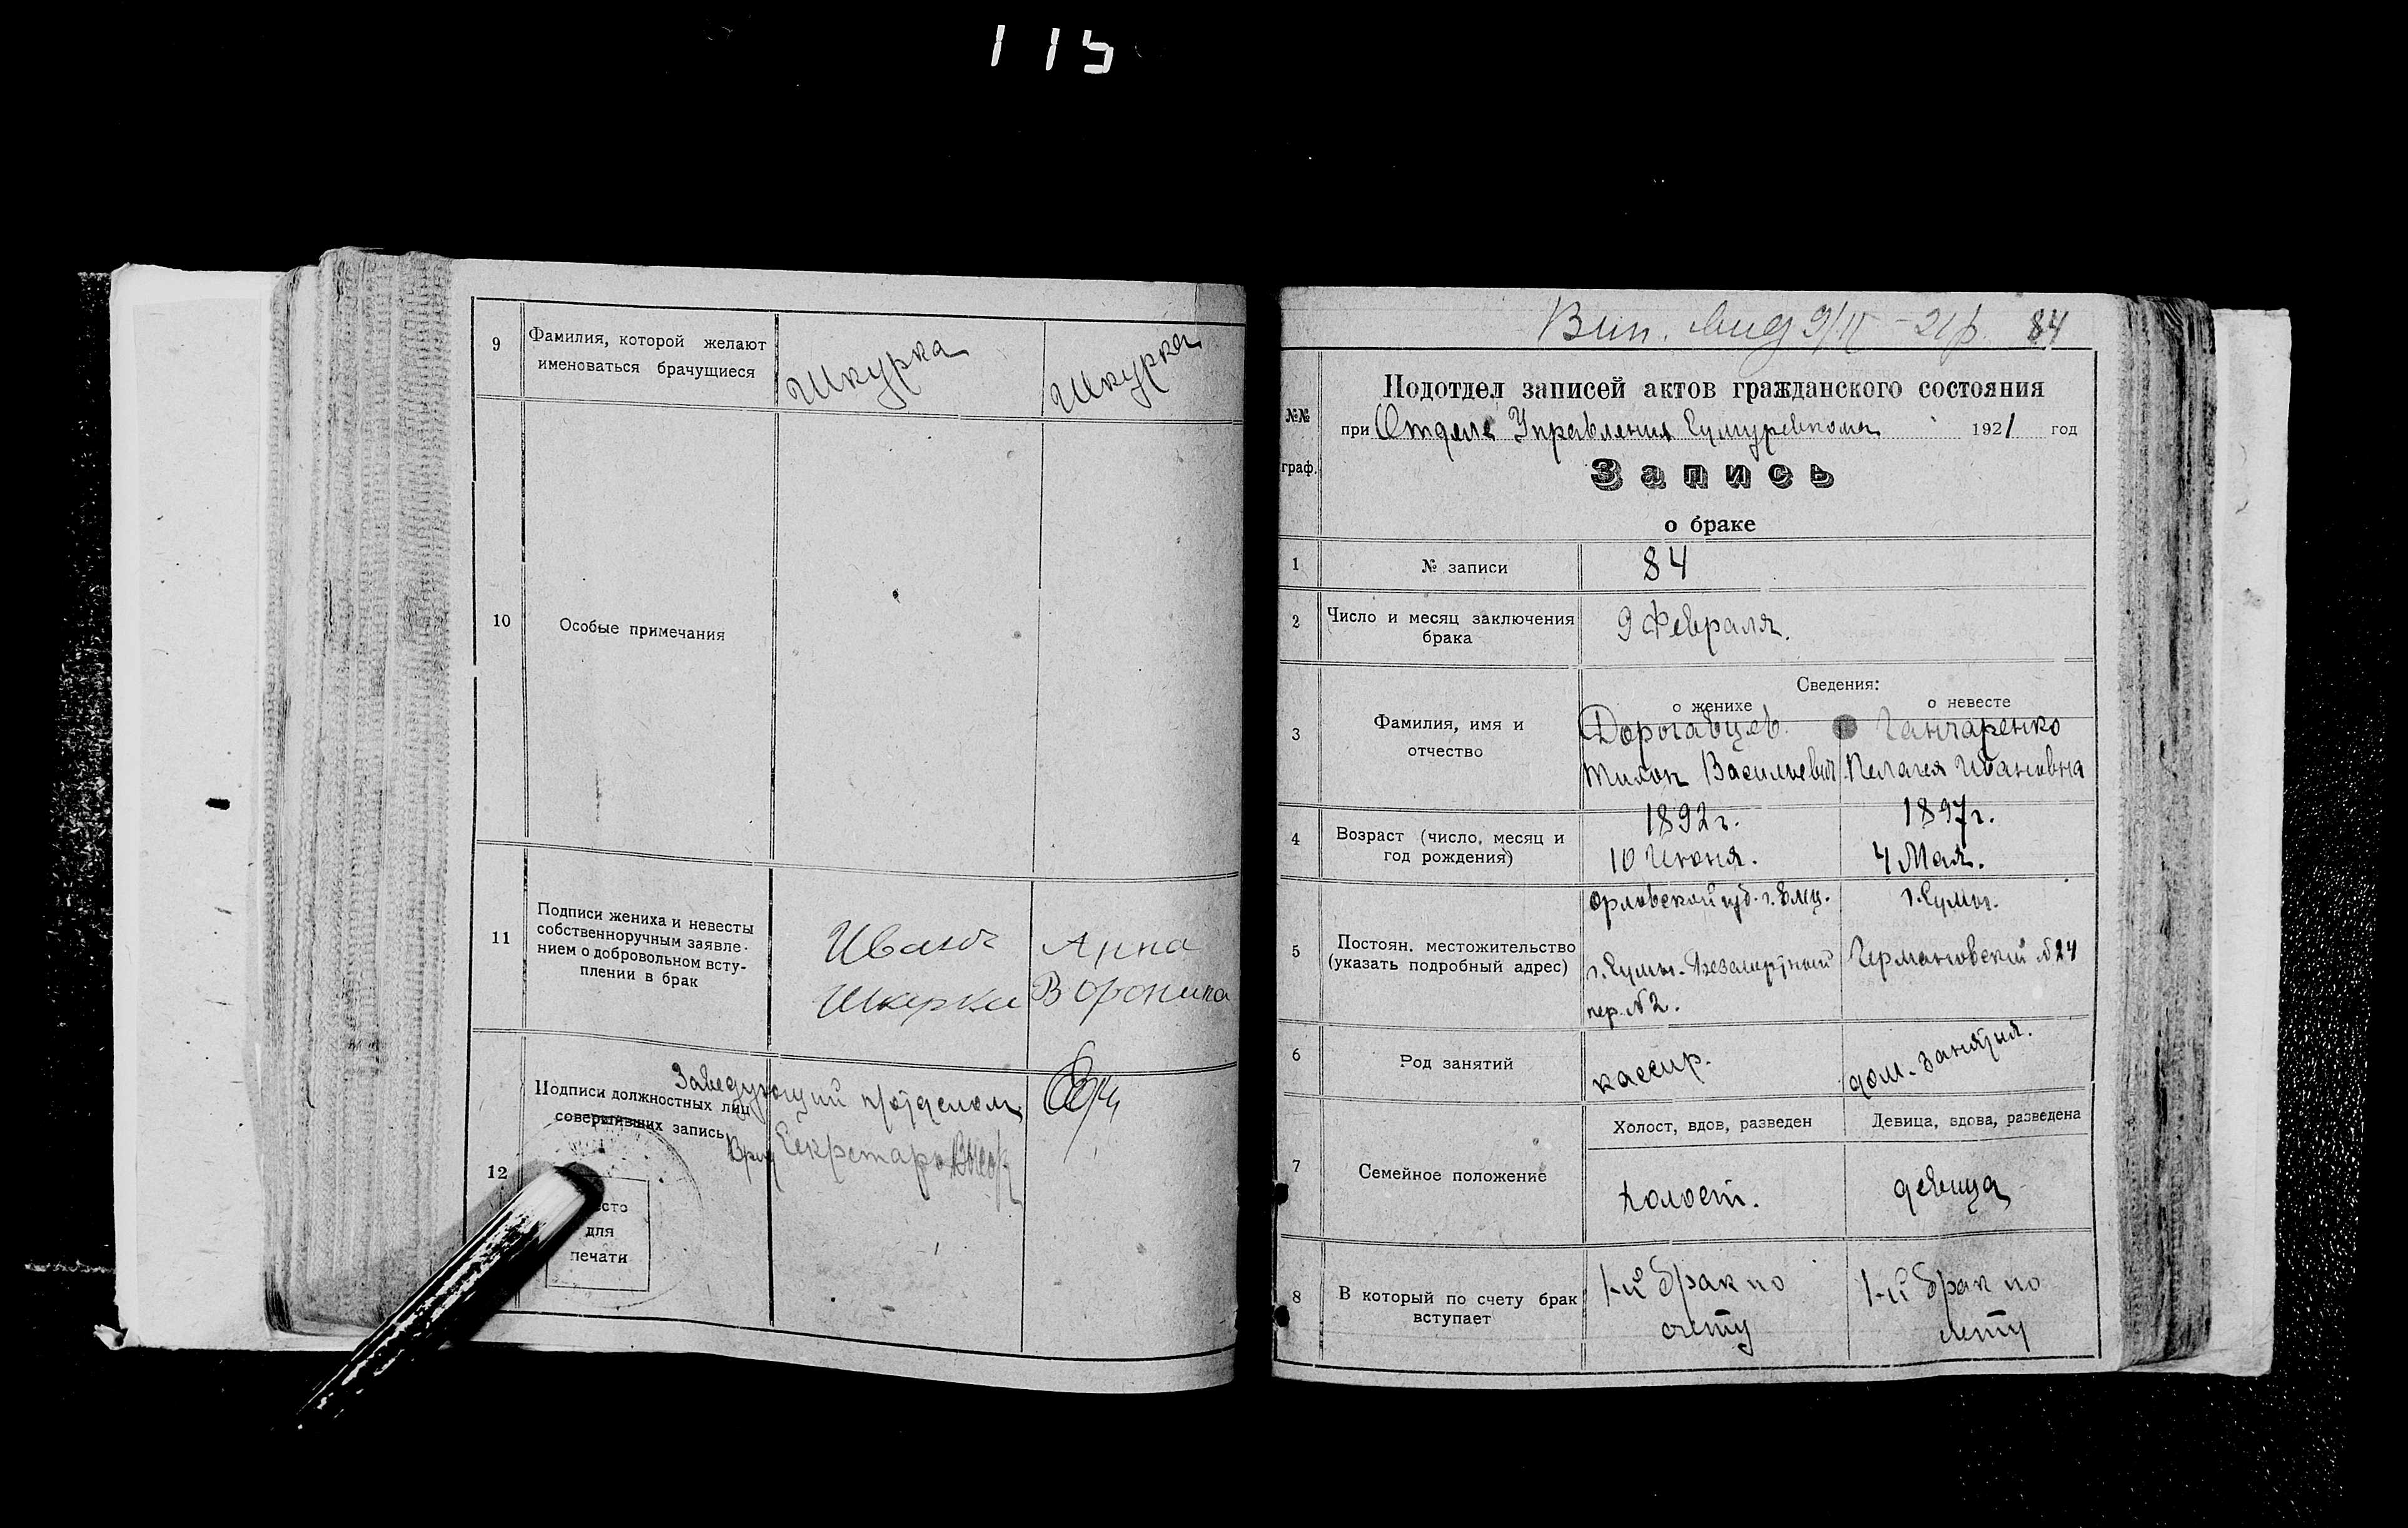 115
9
Фамилия, которой желают
именоваться брачущиеся
Шкурка
Шкурка
10
Особые примечания
11
Подписи жениха и невесты
собственноручным заявле-
нием о добровольном всту-
плении в брак
Иванъ
Шкурка
Анна
Воронина
12
Подписи должностных лиц
совершивших запись
Заведующий п/отделом
Врид Секретаря
место
для
печати
Вип. 9/II-21р. 84
№№
граф.
Подотдел записей актов гражданского состояния
при Отделе Управления Сумуревкома 1921 год
Запись
о браке
1
№ записи
84
2
Число и месяц заключения
брака
9 Февраля.
Сведения:
о женихе
о невесте
3
Фамилия, имя и
отчество
Дорогавцев.
Тихон Васильевич
Ганчаренко
Пелагея Ивановна
4
Возраст (число, месяц и
год рождения)
1892 г.
10 Июня.
1897 г.
4 Мая.
5
Постоян. местожительство
(указать подробный адрес)
Орловской губ. г. Елец.
г. Сумы.
пер. №2.
г. Сумы.
Германовский №24
6
Род занятий
кассир.
дом. занятия.
7
Семейное положение
Холост, вдов, разведен
Девица, вдова, разведена
холост.
девица
8
В который по счету брак
вступает
1-й брак по
счету
1-й брак по
счету